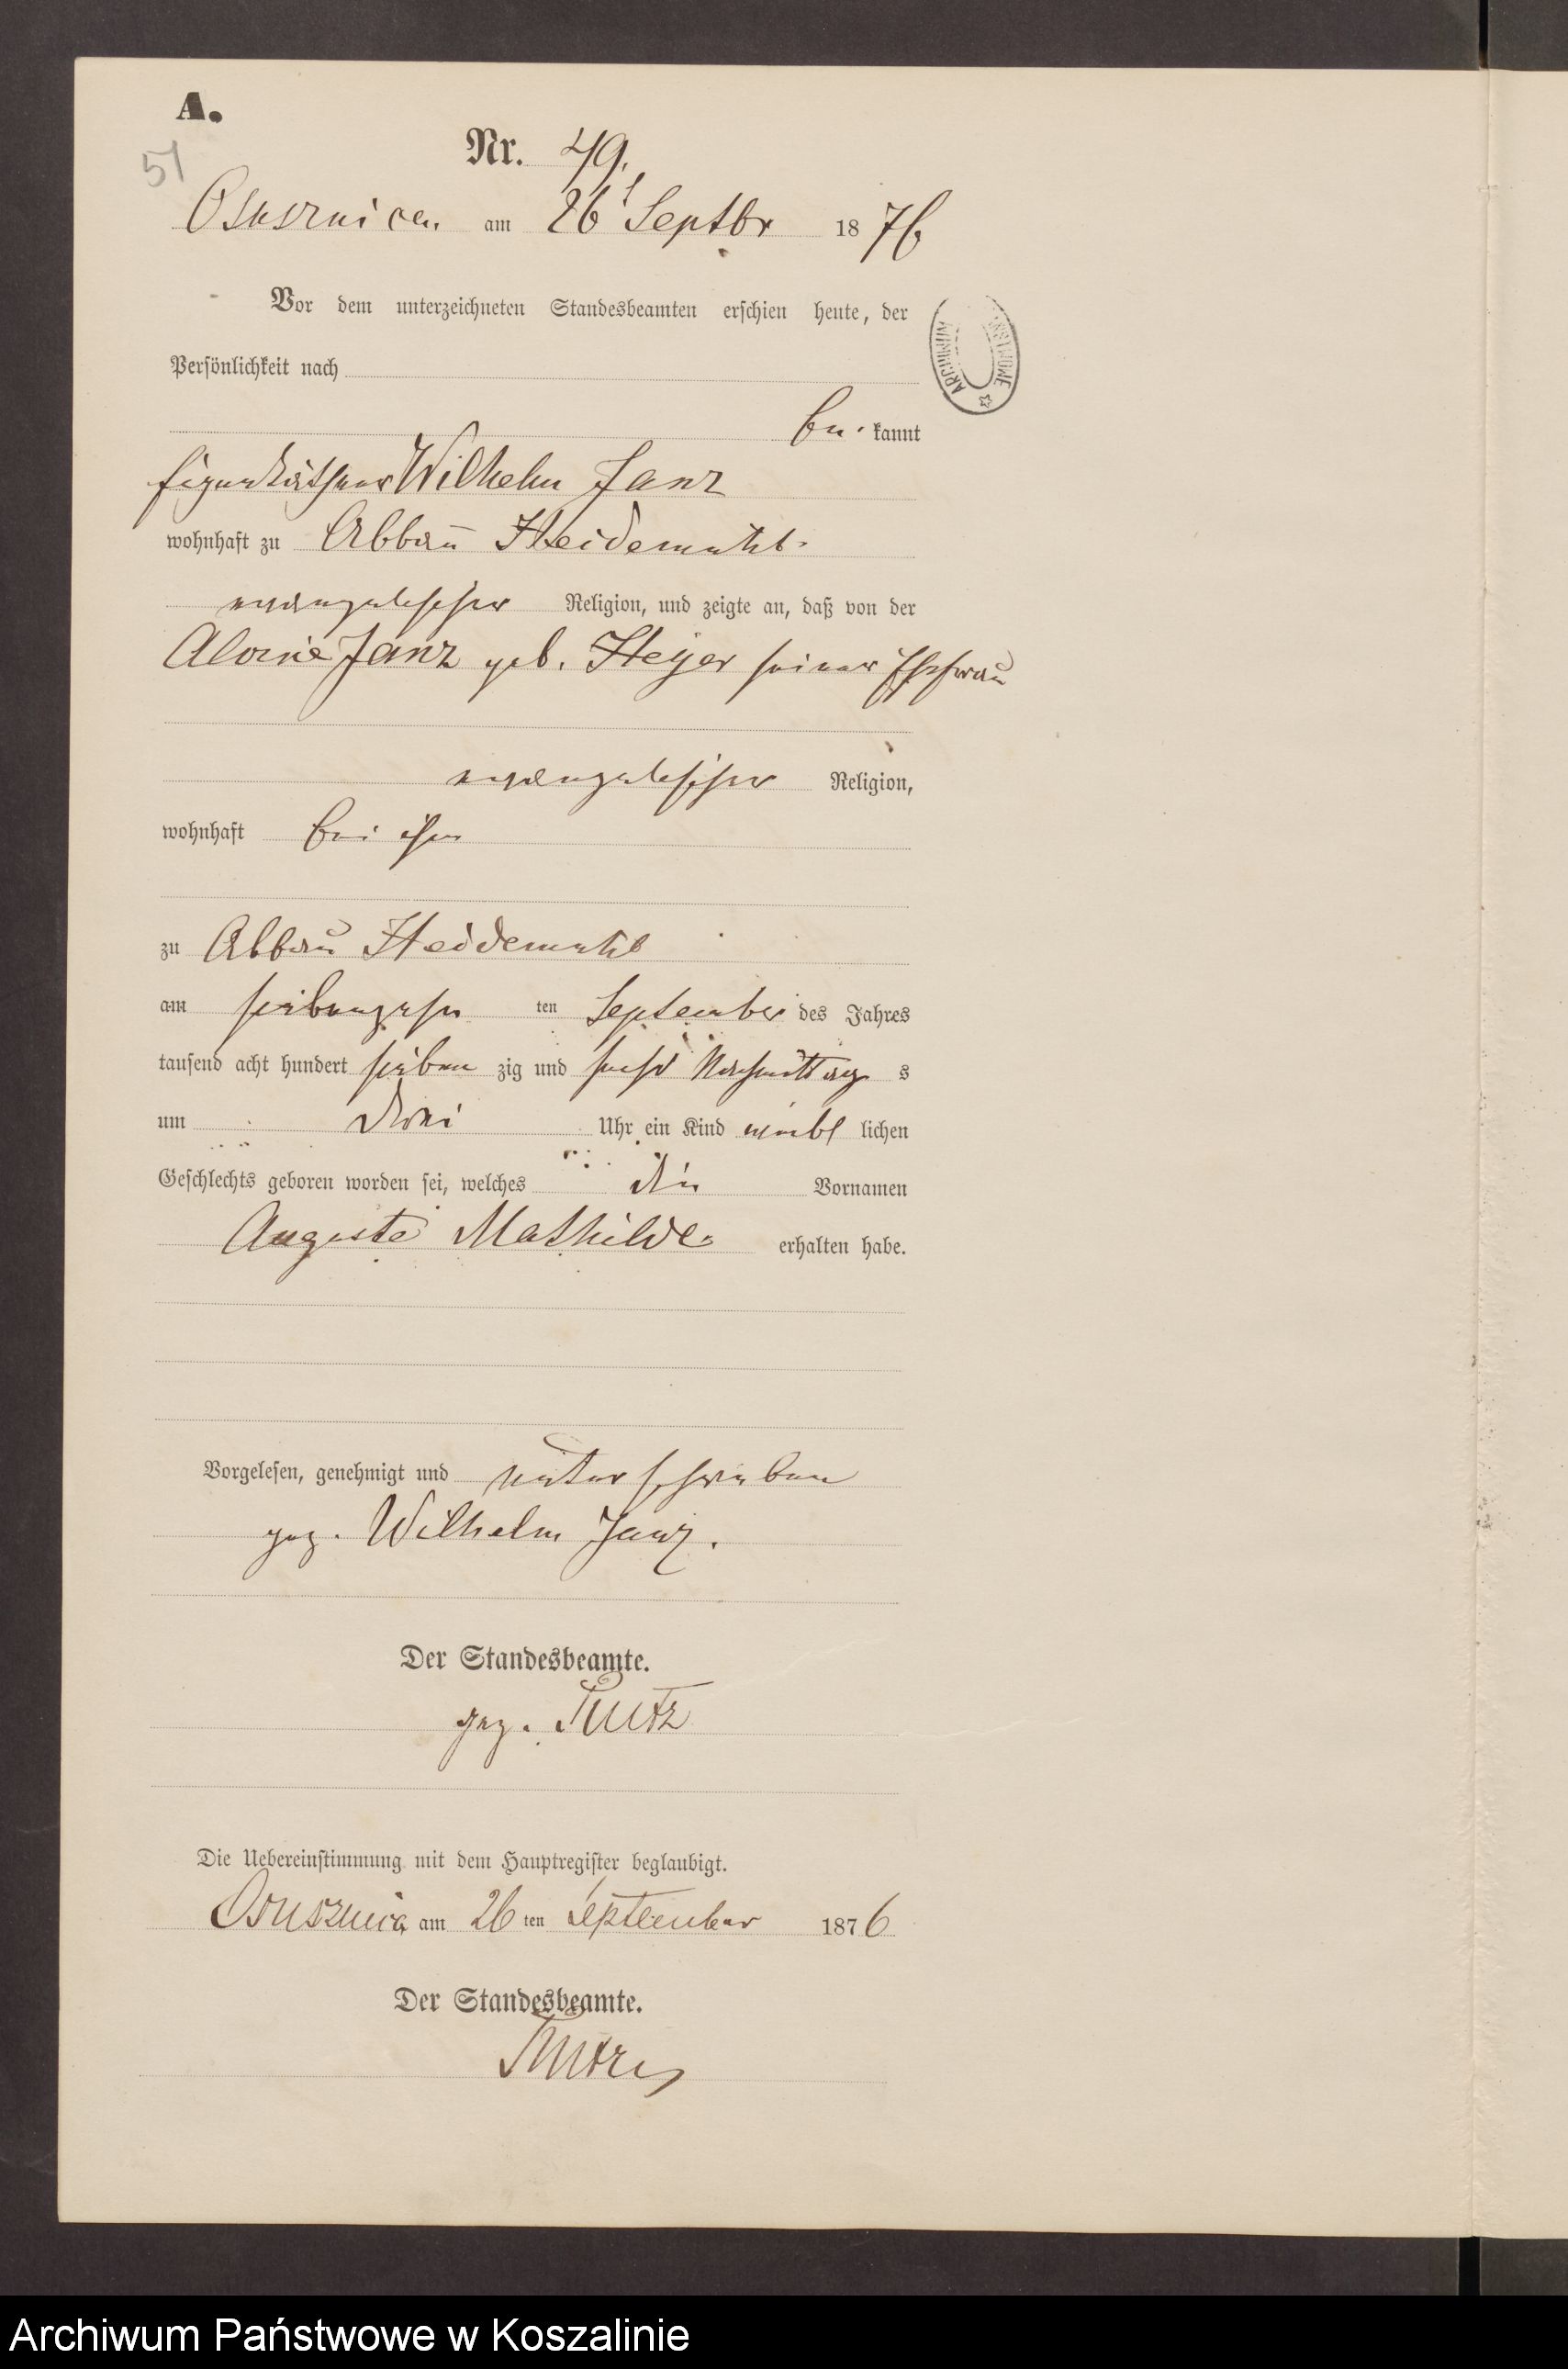 A.
51
Nr. 49.
Osusznica am 26t Septbr 1876
Vor dem unterzeichneten Standesbeamten erschien heute, der
Persönlichkeit nach
be kannt
Eigenkäthner Wilhelm Janz
wohnhaft zu Abbau Heidemühl
evangelischer Religion, und zeigte an, daß von der
Janz geb. Heyer seiner Ehefrau
evangelischer Religion,
wohnhaft bei ihm
zu Abbau Heidemühl
am siebenzehn ten September des Jahres
tausend acht hundert sieben zig und sechs Nachmittag s
um drei Uhr ein Kind weibl lichen
Geschlechts geboren worden sei, welches die Vornamen
Auguste Mathilde erhalten habe.
Vorgelesen, genehmigt und unterschrieben
gez. Wilhelm Janz.
Der Standesbeamte.
gez.
Die Uebereinstimmung mit dem Hauptregister beglaubigt.
Osusznica am 26 ten September 1876
Der Standesbeamte.
ARCHIWUM
Archiwum Państwowe w Koszalinie